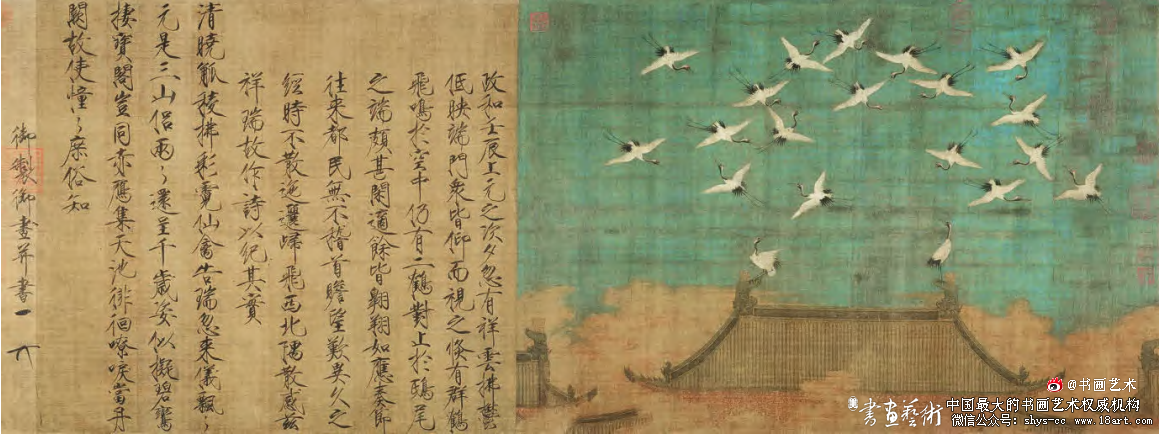 政和壬辰上元之次夕忽有祥雲拂鬱
低映端門衆皆仰而視之倏有群鶴
飛鳴於空中仍有二鶴對止於鴟尾
之端頗甚閑適餘皆翱翔如應奏節
往來都民無不稽首瞻望歎異久之
經時不散迤邐歸飛西北隅散感茲
祥瑞故作詩以紀其實
清曉觚稜拂彩霓仙禽告瑞忽來儀飄々
元是三山侶兩々還呈千歲姿似擬碧鸞
棲寶閣豈同赤鴈集天池徘徊嘹唳當丹
闕故使憧々庶俗知
御製御畫并書
@书画艺术
書畫藝術
中国最大的书画艺术权威机构
微信公众号: shys-cc www.18art.com